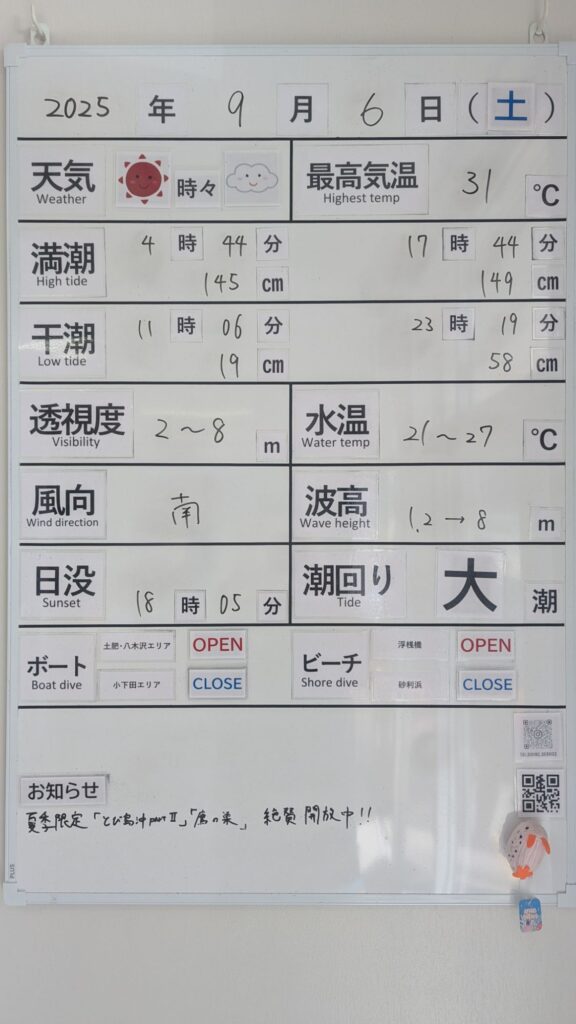 2025 年 9 月 6 日 (土)
天気 時々 最高気温 31 ℃
Weather Highest temp
満潮 4 時 44 分 17 時 44 分
High tide 145 cm 149 cm
干潮 11 時 06 分 23 時 19 分
Low tide 19 cm 58 cm
透視度 2～8 m 水温 21～27 ℃
Visibility Water temp
風向 南 波高 1.2→8 m
Wind direction Wave height
日没 18 時 05 分 潮回り 大 潮
Sunset Tide
ボート 土肥・八木沢エリア OPEN ビーチ 浮桟橋 OPEN
Boat dive 小下田エリア CLOSE Shore dive 砂利浜 CLOSE
お知らせ
夏季限定「とび島沖partⅡ」「魚の巣」絶賛開放中!!
PLUS